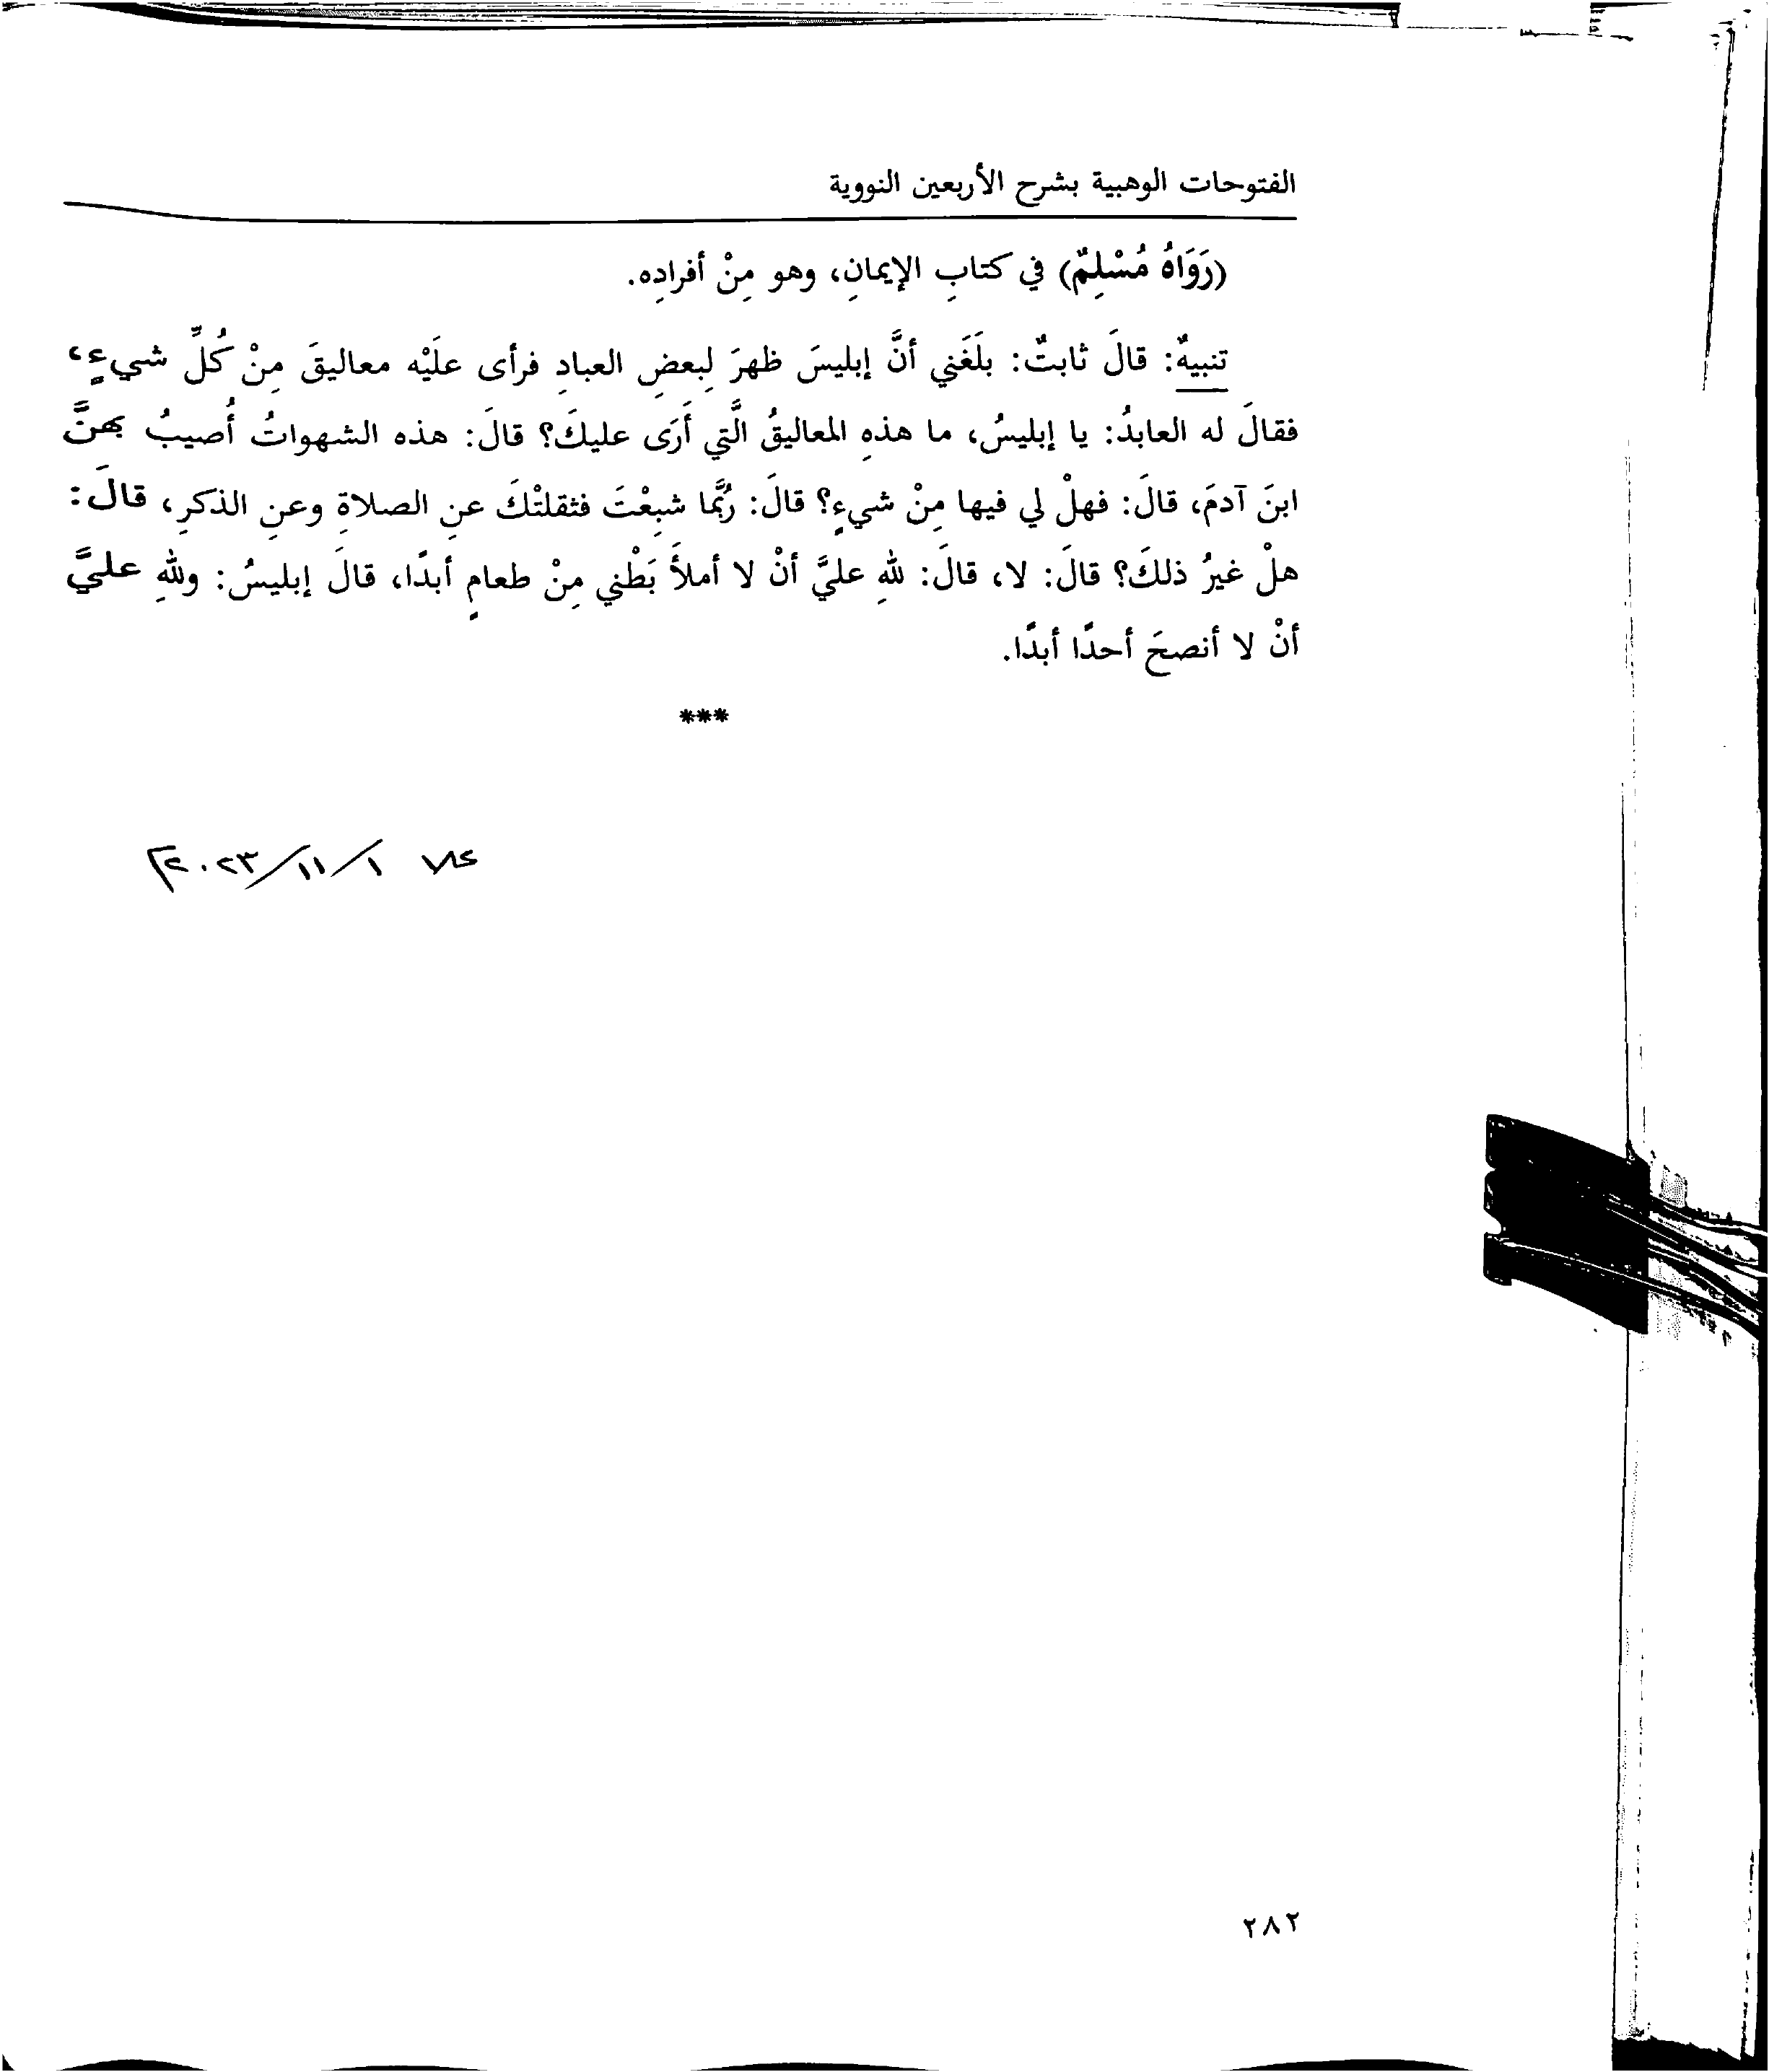 الفتوحات الوهبية بشرح الأربعين النووية
(رَوَاهُ مُسْلِمٌ) في كتابِ الإيمانِ، وهو مِنْ أفرادِه.
تنبيهٌ: قالَ ثابتٌ: بلَغَني أنَّ إبليسَ ظهرَ لِبعضِ العبادِ فرأى علَيْه معاليقَ مِنْ كُلِّ شيءٍ،
فقالَ له العابدُ: يا إبليسُ، ما هذهِ المعاليقُ الَّتي أَرَى عليكَ؟ قالَ: هذه الشهواتُ أُصيبُ بهنَّ
ابنَ آدمَ، قالَ: فهلْ لي فيها مِنْ شيءٍ؟ قالَ: رُبَّما شبِعْتَ فثقلتْكَ عنِ الصلاةِ وعنِ الذكرِ، قالَ:
هلْ غيرُ ذلكَ؟ قالَ: لا، قالَ: للهِ عليَّ أنْ لا أملأَ بَطْني مِنْ طعامٍ أبدًا، قالَ إبليسُ: وللهِ عليَّ
أنْ لا أنصحَ أحدًا أبدًا.
***
١/١١/٢٠٢٣م
٢٨٢